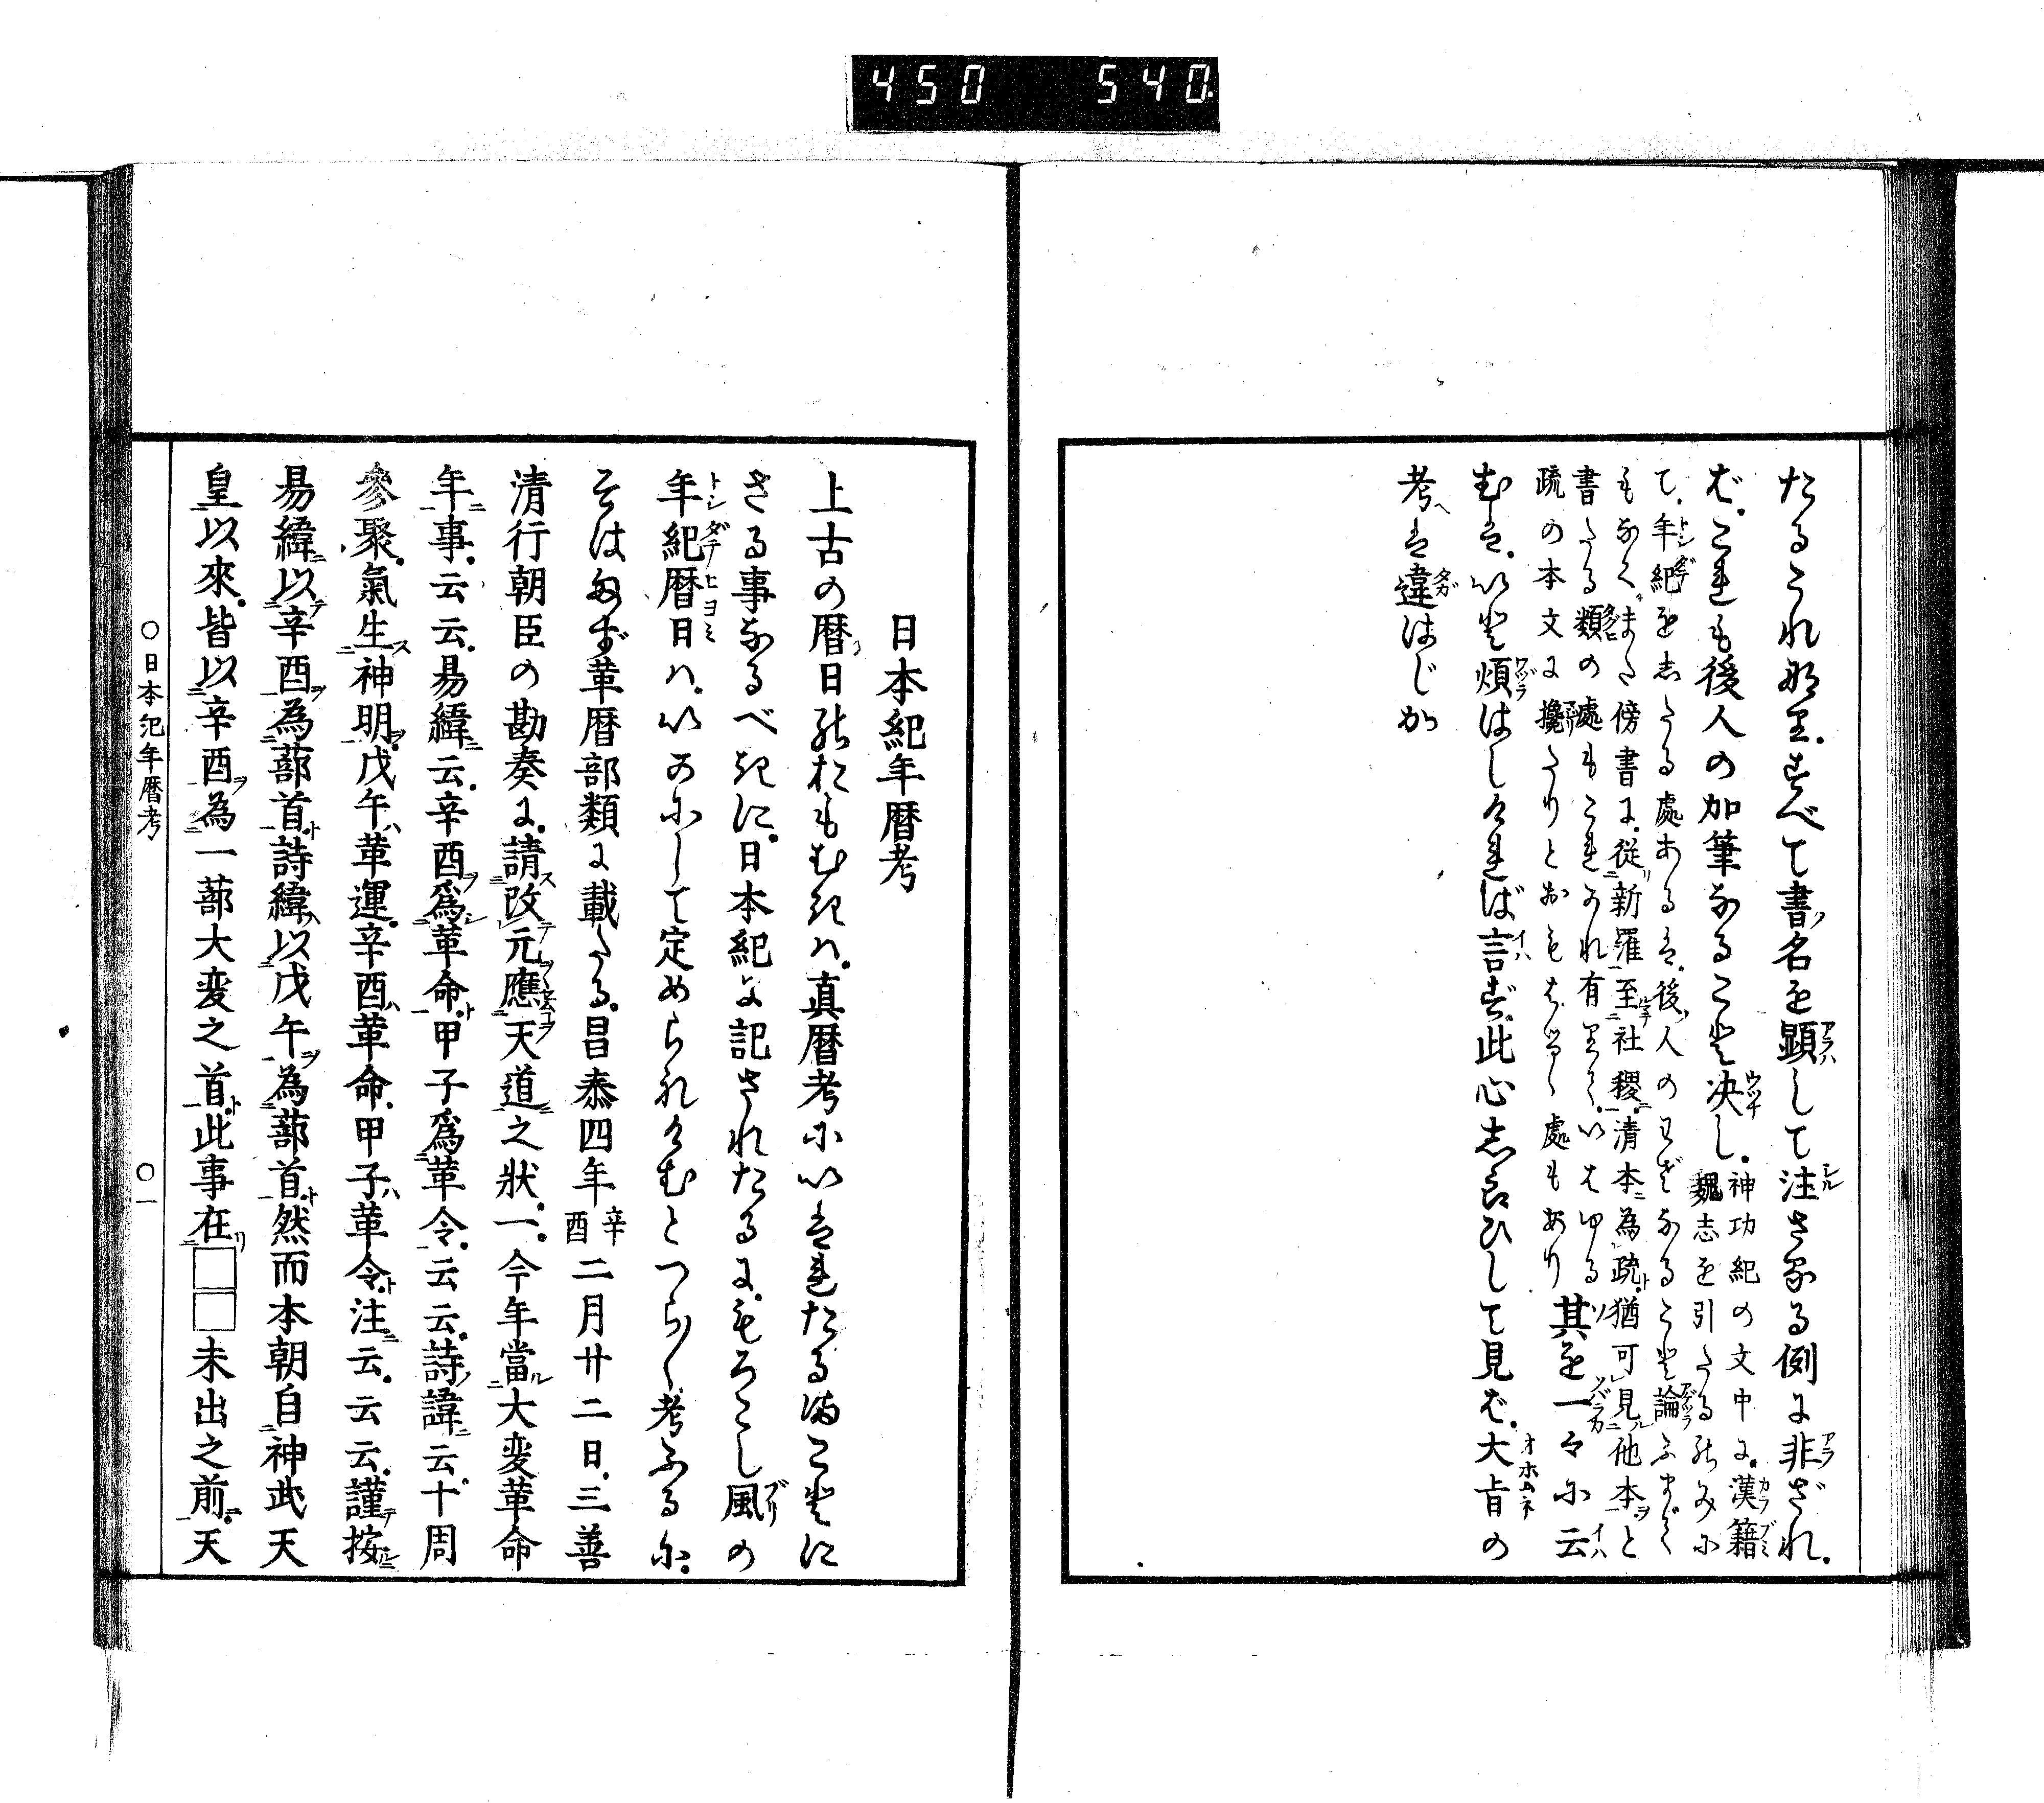 450 540
たるこれなり。すべて書名を顕して注さゞる例に非ざれ。
ば。これも後人の加筆なること决し。神功紀の文中に。漢籍
魏志を引たるのみに
て。年紀を志たる處あるは。後人のわざなること論ふまでく
もなく。また傍書に。從新羅至社稷。清本為疏。猶可見他本と
書たる類の處もこれかれ有りて。いはゆる
疏の本文に攙たりとおもはるゝ處もあり
其を一々に云
むは。いと煩はしければ言ず。此心志らひして見ば。大旨の
考は違はじか
日本紀年暦考
上古の暦日のおもむきハ。真暦考にいはれたるまことに
さる事なるべきに。日本紀に記されたるに。もろこし風の
年紀暦日ハ。いかにして定められけむとつら〳〵考ふるに。
そはまず革暦部類に載たる。昌泰四年辛酉二月廿二日。三善
清行朝臣の勘奏に。請改元應天道之狀。一。今年當大変革命
年事。云云。易緯云。辛酉爲革命。甲子爲革令。云云。詩諱云。十周
參聚。氣生神明。戊午革運。辛酉革命。甲子革令。注云。云云。謹按
易緯以辛酉為蔀首。詩緯以戊午為蔀首。然而本朝自神武天
皇以來。皆以辛酉為一蔀大変之首。此事在□□未出之前。天
○日本紀年暦考 ○一